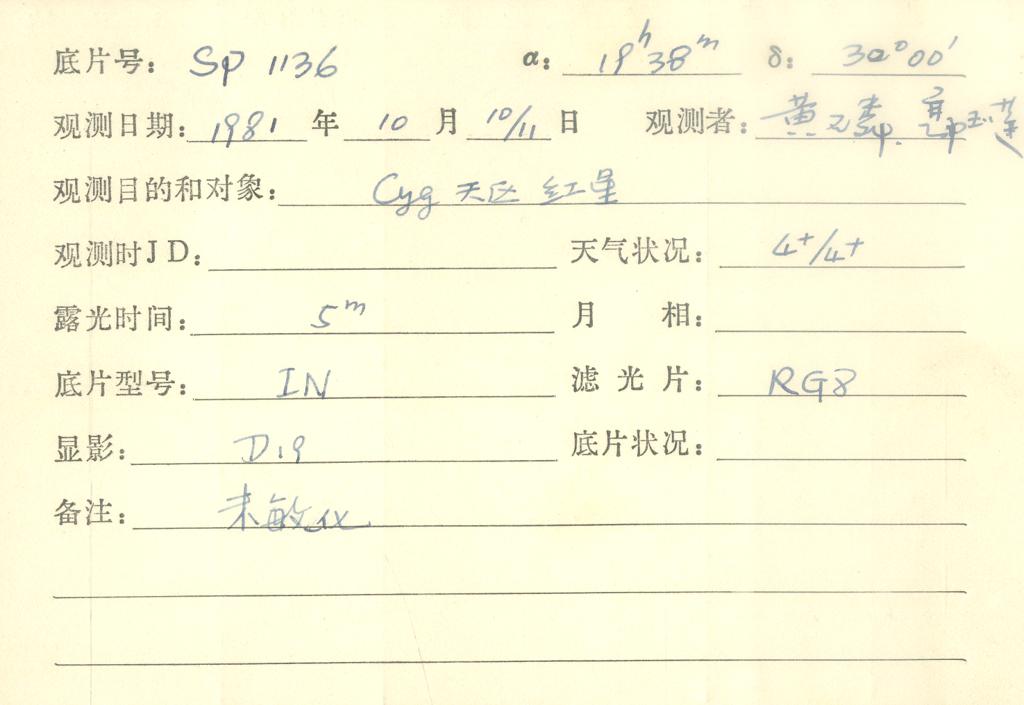 底片号: Sp 1136 α: 19ʰ38ᵐ δ: 30°00′
观测日期: 1981 年 10 月 10/11 日 观测者: 黄
观测目的和对象: Cyg 天区 红星
观测时JD: 天气状况: 4⁺/4⁺
露光时间: 5ᵐ 月 相:
底片型号: IN 滤光片: RG8
显影: D19 底片状况:
备注: 未敏化